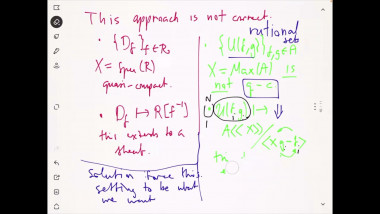 This approach is not correct.
• {D_f}_{f∈R},
X = Spec(R)
quasi-compact.
• D_f ↦ R[f⁻¹]
this extends to a
sheaf.
Solution force this
setting to be what
we want
rational
sets
• {U(f,g)}_{f,g∈A}
X = Max(A) is
not q-c
U(f,g) ↦
A⟨⟨X⟩⟩/⟨Xg-f⟩